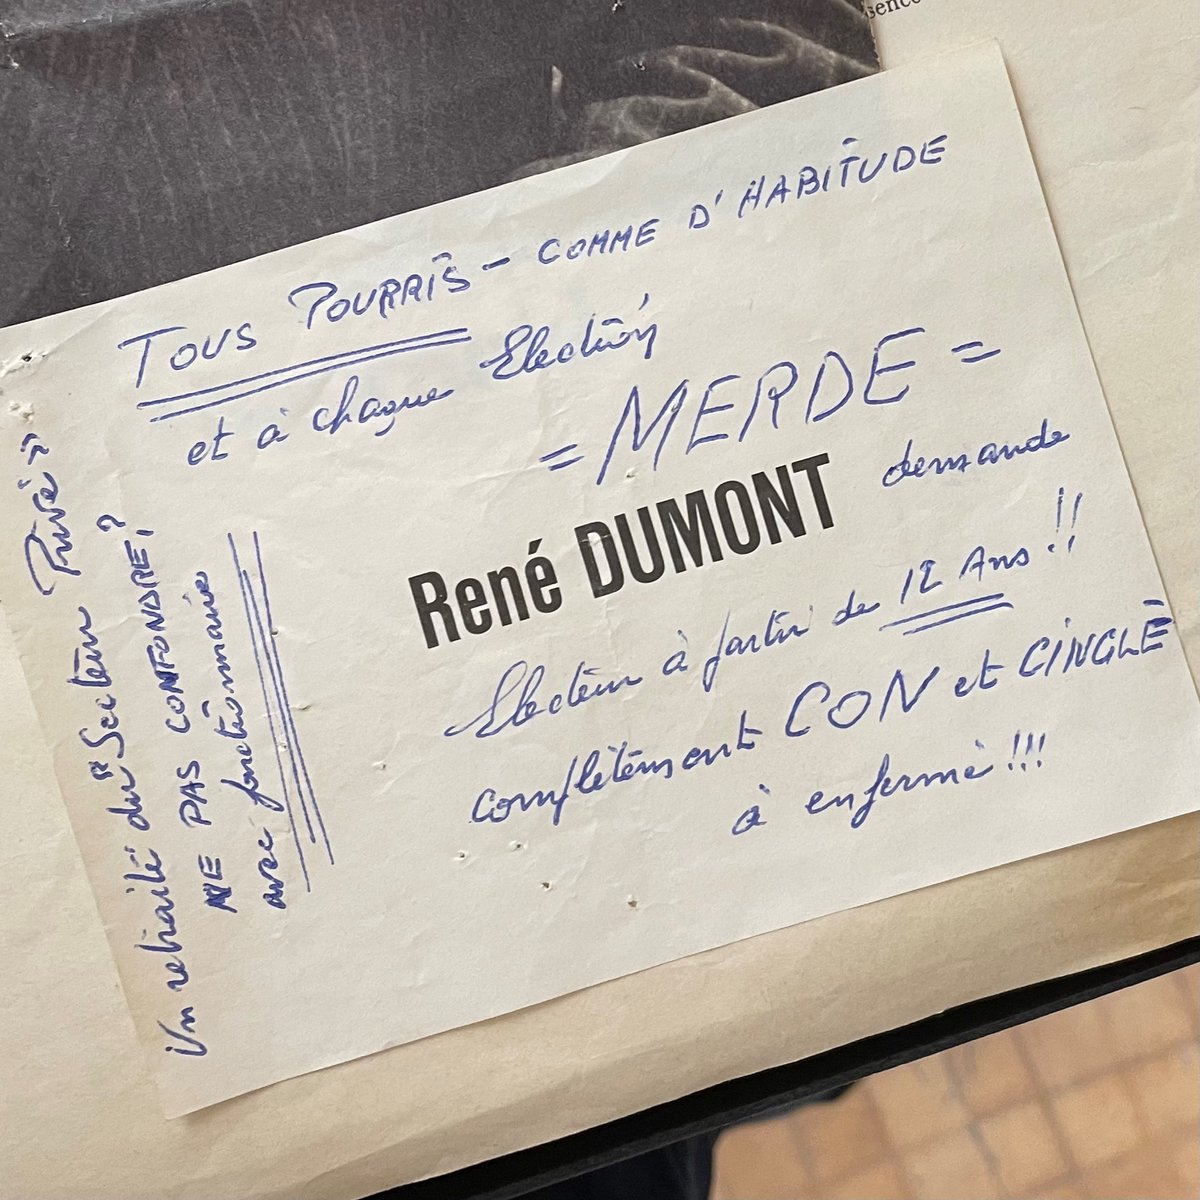 sence
TOUS POURRIS - COMME D'HABITUDE
et à chaque Election
= MERDE =
René DUMONT demande
Electeur à partir de 12 Ans !!
complètement CON et CINGLÉ
à enfermé !!!
Un retraité du "Secteur Privé"
NE PAS CONFONDRE,
avec fonctionnaire